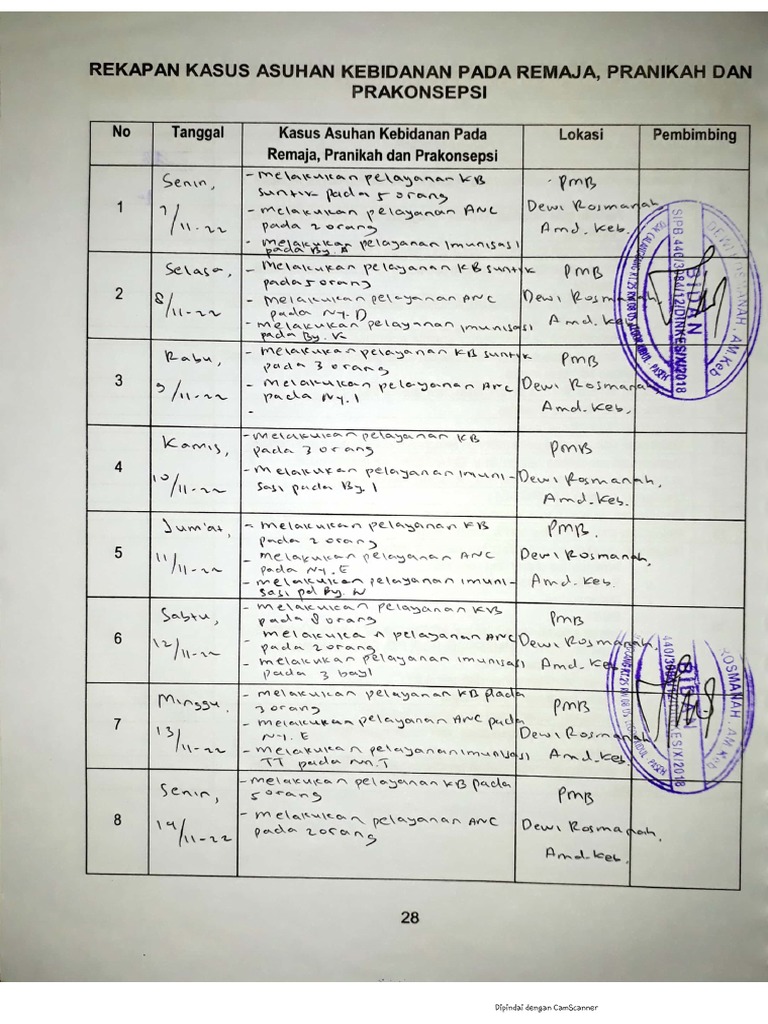 REKAPAN KASUS ASUHAN KEBIDANAN PADA REMAJA, PRANIKAH DAN
PRAKONSEPSI
No Tanggal Kasus Asuhan Kebidanan Pada Lokasi Pembimbing
Remaja, Pranikah dan Prakonsepsi
1
Senin,
7/11-22
- Melakukan pelayanan KB
suntik pada 5 orang
- Melakukan pelayanan ANC
pada 2 orang
- Melakukan pelayanan Imunisasi
pada By. A
PMB
Dewi Rosmanah
Amd. Keb.
2
Selasa,
8/11-22
- Melakukan pelayanan KB suntik
pada 5 orang
- Melakukan pelayanan ANC
pada Ny. D
- Melakukan pelayanan imunisasi
pada By. K
PMB
Dewi Rosmanah,
Amd. Keb
3
Rabu,
9/11-22
- Melakukan pelayanan KB suntik
pada 3 orang
- Melakukan pelayanan ANC
pada Ny. I
-
PMB
Dewi Rosmanah
Amd. Keb.
4
Kamis,
10/11-22
- Melakukan pelayanan KB
pada 3 orang
- Melakukan pelayanan imuni-
sasi pada By. I
PMB
Dewi Rosmanah,
Amd. Keb.
5
Jum'at,
11/11-22
- Melakukan pelayanan KB
pada 2 orang
- Melakukan pelayanan ANC
pada Ny. E
- Melakukan pelayanan imuni-
sasi pd By. N
PMB.
Dewi Rosmanah,
Amd. Keb.
6
Sabtu,
12/11-22
- Melakukan pelayanan KB
pada 8 orang
- Melakukan pelayanan ANC
pada 2 orang
- Melakukan pelayanan imunisasi
pada 3 bayi
PMB
Dewi Rosmanah,
Amd. Keb
7
Minggu,
13/11-22
- Melakukan pelayanan KB pada
3 orang
- Melakukan pelayanan ANC pada
Ny. E
- Melakukan pelayanan Imunisasi
TT pada Nn. T
PMB
Dewi Rosmanah
Amd. Keb.
8
Senin,
14/11-22
- Melakukan pelayanan KB pada
5 orang
- Melakukan pelayanan ANC
pada 2 orang
PMB
Dewi Rosmanah,
Amd. Keb.
BIDAN
AM.Keb
BIDAN
ROSMANAH, AM.Keb
28
Dipindai dengan CamScanner